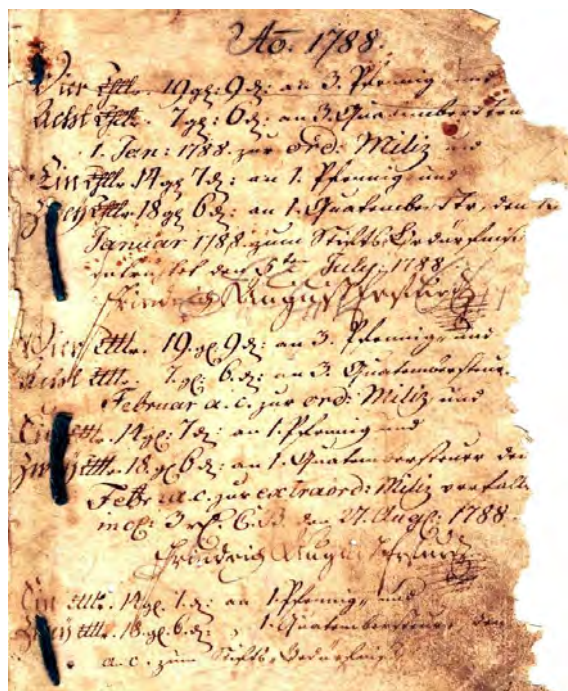 Ao. 1788.
Vier Thlr. 19 gl: 9 d: an 3. Pfennig und
Acht Thlr. 7 gl: 6 d: an 3. Quatembersteu
1. Jan: 1788. zur ord: Miliz und
Ein Thlr. 14 gl 7 d: an 1. Pfennig und
Zwey Thlr. 18 gl 6 d: an 1. Quatemberstr, den
Januar 1788. zum Stifts Bedürfniß
den 5ten July. 1788.
Friedrich August
Vier Thlr. 19. gl. 9 d: an 3. Pfennig, und
Acht Thlr. 7. gl: 6. d: an 3. Quatembersteuer
Februar a. c. zur ord: Miliz und
Ein Thlr. 14 gl: 7 d: an 1. Pfennig und
Zwey Thlr. 18. gl 6 d: an 1. Quatembersteuer den
Febr. a. c. zur extraord: Miliz
den 27. Aug: 1788.
Friedrich August
Ein Thlr. 14 gl. 1. d: an 1. Pfennig, und
Zwey Thlr. 18. gl. 6. d: 1. Quatembersteuer, den
a. c. zum Stifts Bedürfniß